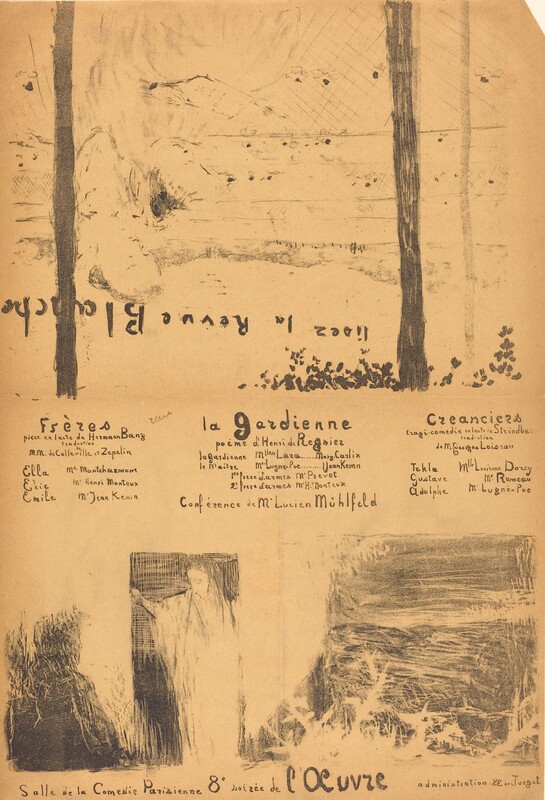 lisez la Revue Blanche
Frères
pièce en 1 acte de Hermann Bang
traduction
MM. de Colleville et Zepelin
Ella Me Montcharmont
Eric Mr Henri Monteux
Emile Mr Jean Kemm
la Gardienne
poème d'Henri de Regnier
la gardienne Mlles Lara...... Mary Carlix
le maître Mr Lugné-Poe......Jean Kemm
1er frère d'armes Mr Prevot
2e frère d'armes Mr H. Monteux
Conférence de Mr Lucien Mühlfeld
Creanciers
tragi-comédie Strindberg
traduction
de Mr Georges Loiseau
Tekla Mlle Lucienne Dorsy
Gustave Mr Rameau
Adolphe Mr Lugné-Poe
Salle de la Comedie Parisienne 8e soirée de l'Œuvre
administration 22 r Turgot